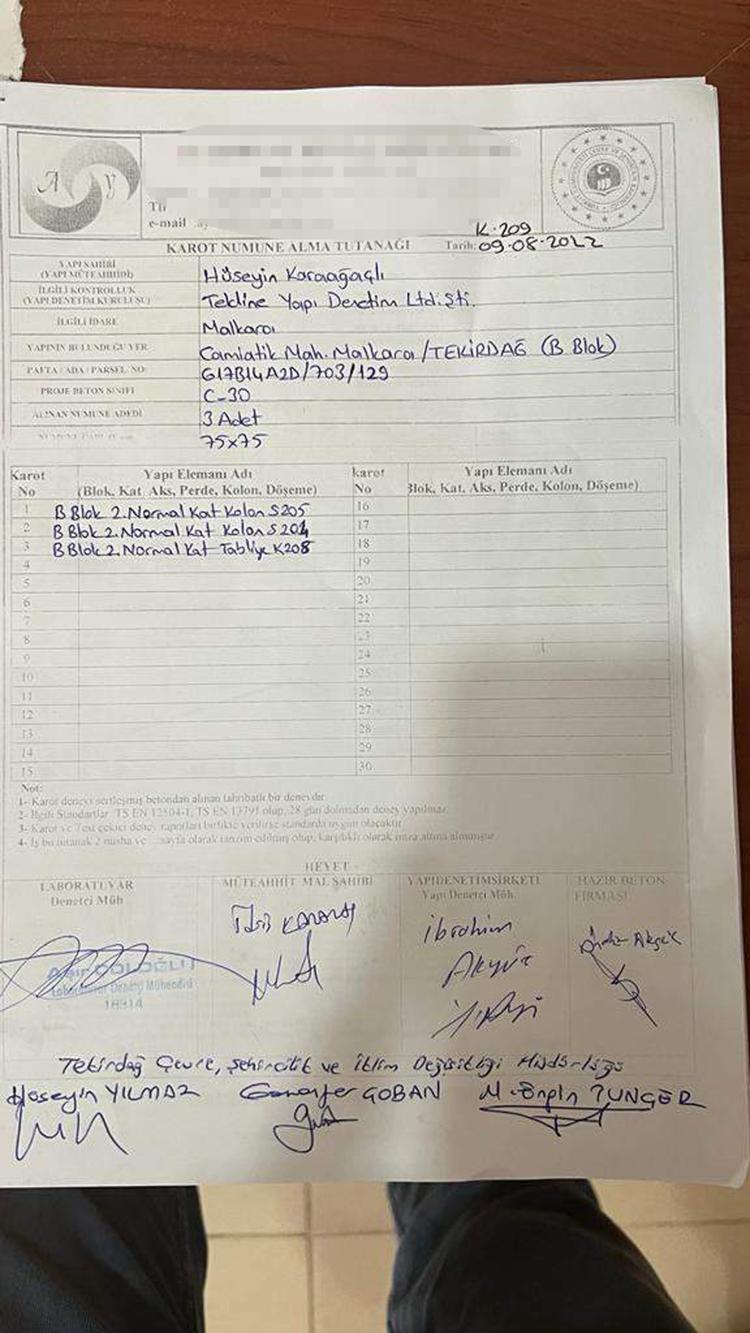 A Y
e-mail
K-209
KAROT NUMUNE ALMA TUTANAĞI Tarih: 09-08-2022
YAPI SAHİBİ
(YAPI MÜTEAHHİDİ) Hüseyin Karaağaçlı
İLGİLİ KONTROLLUK
(YAPI DENETİM KURULUŞU) Tekline Yapı Denetim Ltd.Şti.
İLGİLİ İDARE Malkara
YAPININ BULUNDUĞU YER Camiatik Mah. Malkara/TEKİRDAĞ (B Blok)
PAFTA / ADA / PARSEL NO: G17B14A2D/703/129
PROJE BETON SINIFI C-30
ALINAN NUMUNE ADEDİ 3 Adet
75x75
Karot No Yapı Elemanı Adı (Blok, Kat Aks, Perde, Kolon, Döşeme) karot No Yapı Elemanı Adı Blok, Kat, Aks, Perde, Kolon, Döşeme)
1 B Blok 2.Normal Kat Kolon S205 16
2 B Blok 2.Normal Kat Kolon S201 17
3 B Blok 2.Normal Kat Tabliye K208 18
4 19
5 20
6 21
7 22
8 23
9 24
10 25
11 26
12 27
13 28
14 29
15 30
Not:
1- Karot deneyi sertleşmiş betondan alınan tahribatlı bir deneydir
2- İlgili Standartlar TS EN 12504-1, TS EN 13791 olup, 28 gün dolmadan deney yapılmaz.
3- Karot ve Test çekici deney raporları birlikte verilirse standarda uygun olacaktır
4- İş bu tutanak 2 nüsha ve sayfa olarak tanzim edilmiş olup, karşılıklı olarak imza altına alınmıştır.
HEYET
LABORATUVAR
Denetçi Müh
MÜTEAHHİT MAL SAHİBİ
YAPIDENETİMSİRKETİ
Yapı Denetçi Müh.
HAZIR BETON
FİRMASI
İbrahim
Akyüz
Laboratuar Denetçi Mühendisi
18314
Tekirdağ Çevre, Şehircilik ve İklim Değişikliği Müdürlüğü
Hüseyin YILMAZ ÇOBAN